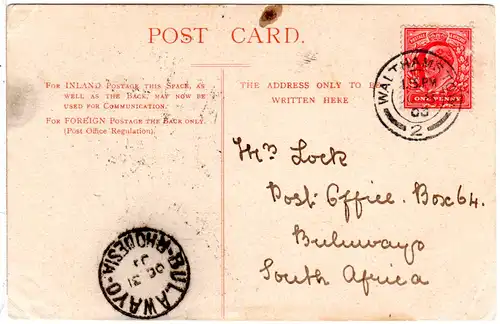 POST CARD.
FOR INLAND POSTAGE THIS SPACE, AS
WELL AS THE BACK, MAY NOW BE
USED FOR COMMUNICATION.
FOR FOREIGN POSTAGE THE BACK ONLY.
(Post Office Regulation).
THE ADDRESS ONLY TO BE
WRITTEN HERE
WALTHAMS
PM
2
ONE PENNY
Mrs Lock
Post Office. Box 64.
Buluwayo
South Africa
BULAWAYO-RHODESIA
31